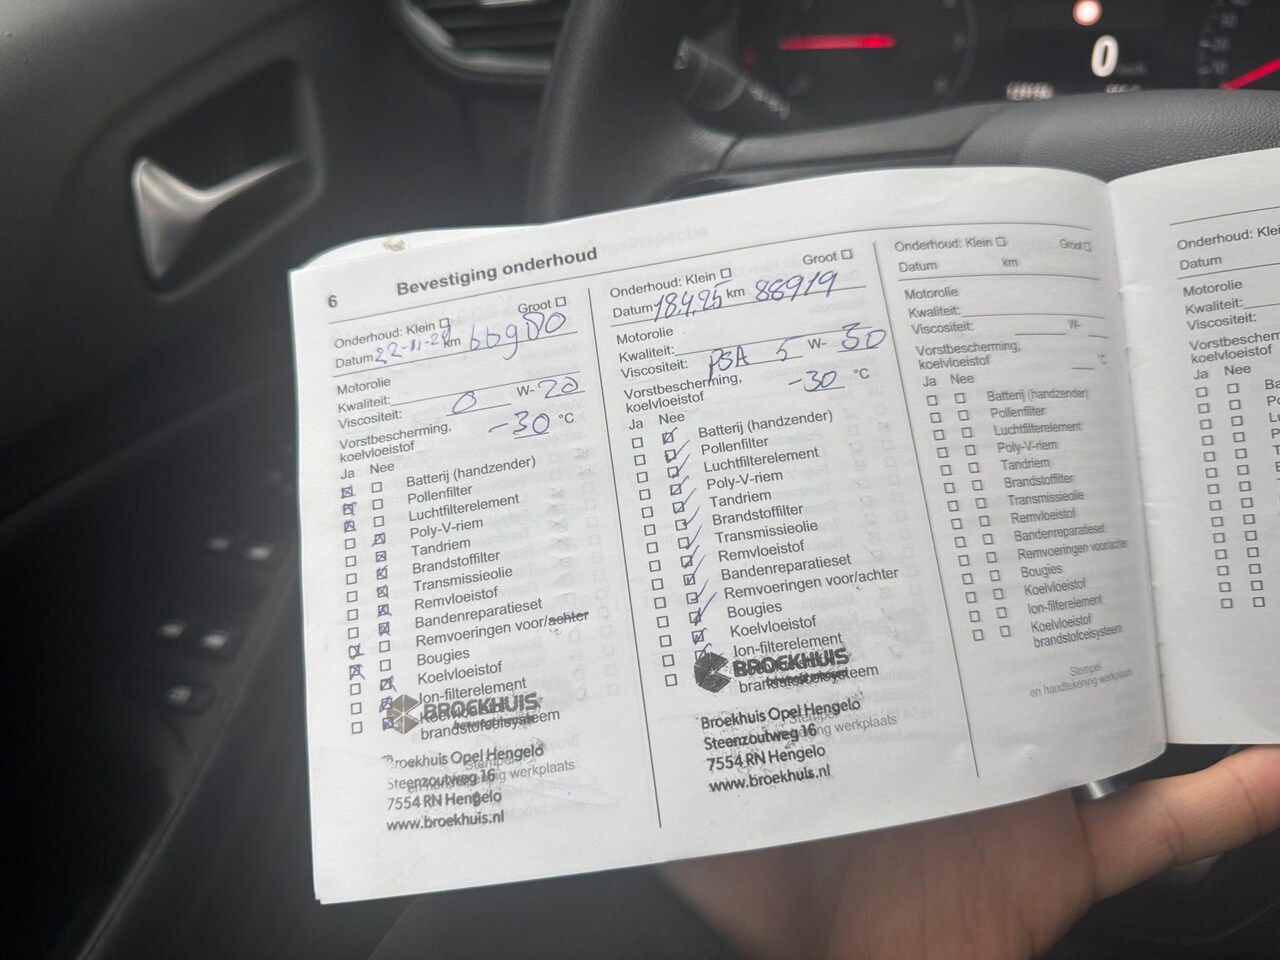 6 Bevestiging onderhoud
Onderhoud: Klein ☐ Groot ☐
Datum 22-11-24 km
Motorolie
Kwaliteit:
Viscositeit: 0 W- 20
Vorstbescherming,
koelvloeistof -30 °C
Ja Nee
Batterij (handzender)
Pollenfilter
Luchtfilterelement
Poly-V-riem
Tandriem
Brandstoffilter
Transmissieolie
Remvloeistof
Bandenreparatieset
Remvoeringen voor/achter
Bougies
Koelvloeistof
Ion-filterelement
BROEKHUIS
brandstofcelsysteem
Broekhuis Opel Hengelo
Steenzoutweg 16
en handtekening werkplaats
7554 RN Hengelo
www.broekhuis.nl
Onderhoud: Klein ☐ Groot ☐
Datum 18,4,25 km 88919
Motorolie
Kwaliteit:
Viscositeit: PSA 5 W- 30
Vorstbescherming,
koelvloeistof -30 °C
Ja Nee
Batterij (handzender)
Pollenfilter
Luchtfilterelement
Poly-V-riem
Tandriem
Brandstoffilter
Transmissieolie
Remvloeistof
Bandenreparatieset
Remvoeringen voor/achter
Bougies
Koelvloeistof
Ion-filterelement
BROEKHUIS
brandstofcelsysteem
Broekhuis Opel Hengelo
Stempel
Steenzoutweg 16
werkplaats
7554 RN Hengelo
www.broekhuis.nl
Onderhoud: Klein ☐ Groot ☐
Datum km
Motorolie
Kwaliteit:
Viscositeit: W-
Vorstbescherming,
koelvloeistof °C
Ja Nee
Batterij (handzender)
Pollenfilter
Luchtfilterelement
Poly-V-riem
Tandriem
Brandstoffilter
Transmissieolie
Remvloeistof
Bandenreparatieset
Remvoeringen voor/achter
Bougies
Koelvloeistof
Ion-filterelement
Koelvloeistof
brandstofcelsysteem
Stempel
en handtekening werkplaats
Onderhoud: Klei
Datum
Motorolie
Kwaliteit:
Viscositeit:
Vorstbescherm
koelvloeistof
Ja Nee
0